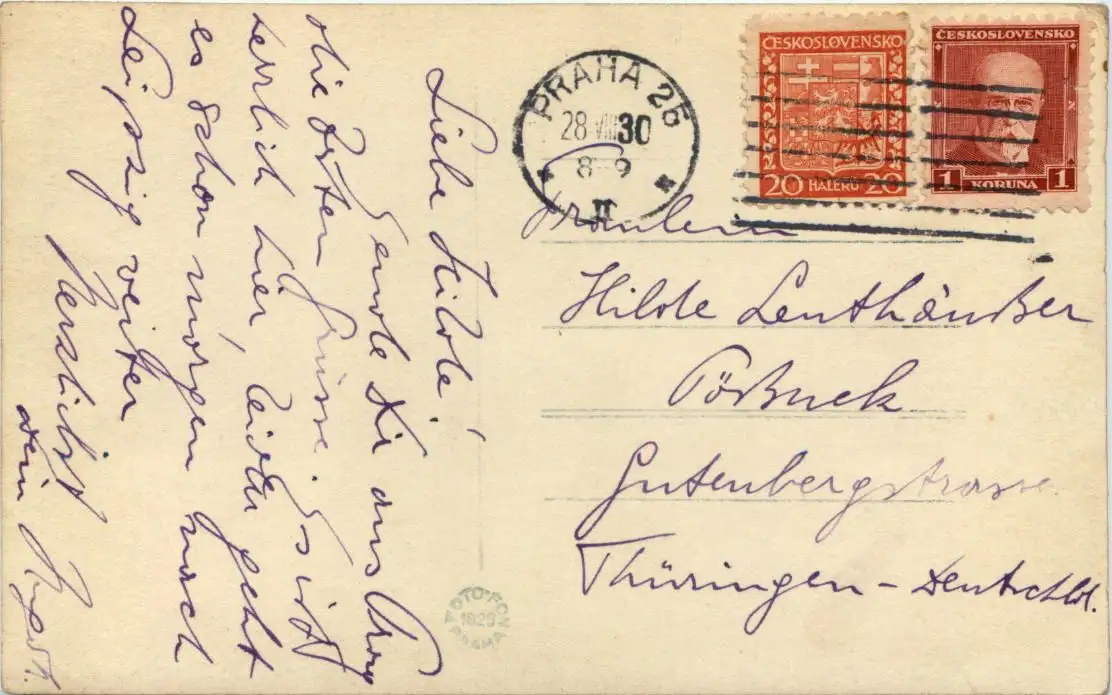 Liebe Hilde!
Sende Dir aus Prag
die besten Grüsse. Es ist
herrlich hier, leider geht
es schon morgen nach
Leipzig weiter
Herzlichst
Dein
PRAHA 25
28 VIII 30
8-9
II
ČESKOSLOVENSKO
20 HALÉŘŮ 20
ČESKOSLOVENSKO
1 KORUNA 1
Fräulein
Hilde Lenthäußer
Pößneck
Gutenbergstrasse
Thüringen – Deutschld.
FOTO-FON
1029
PRAHA